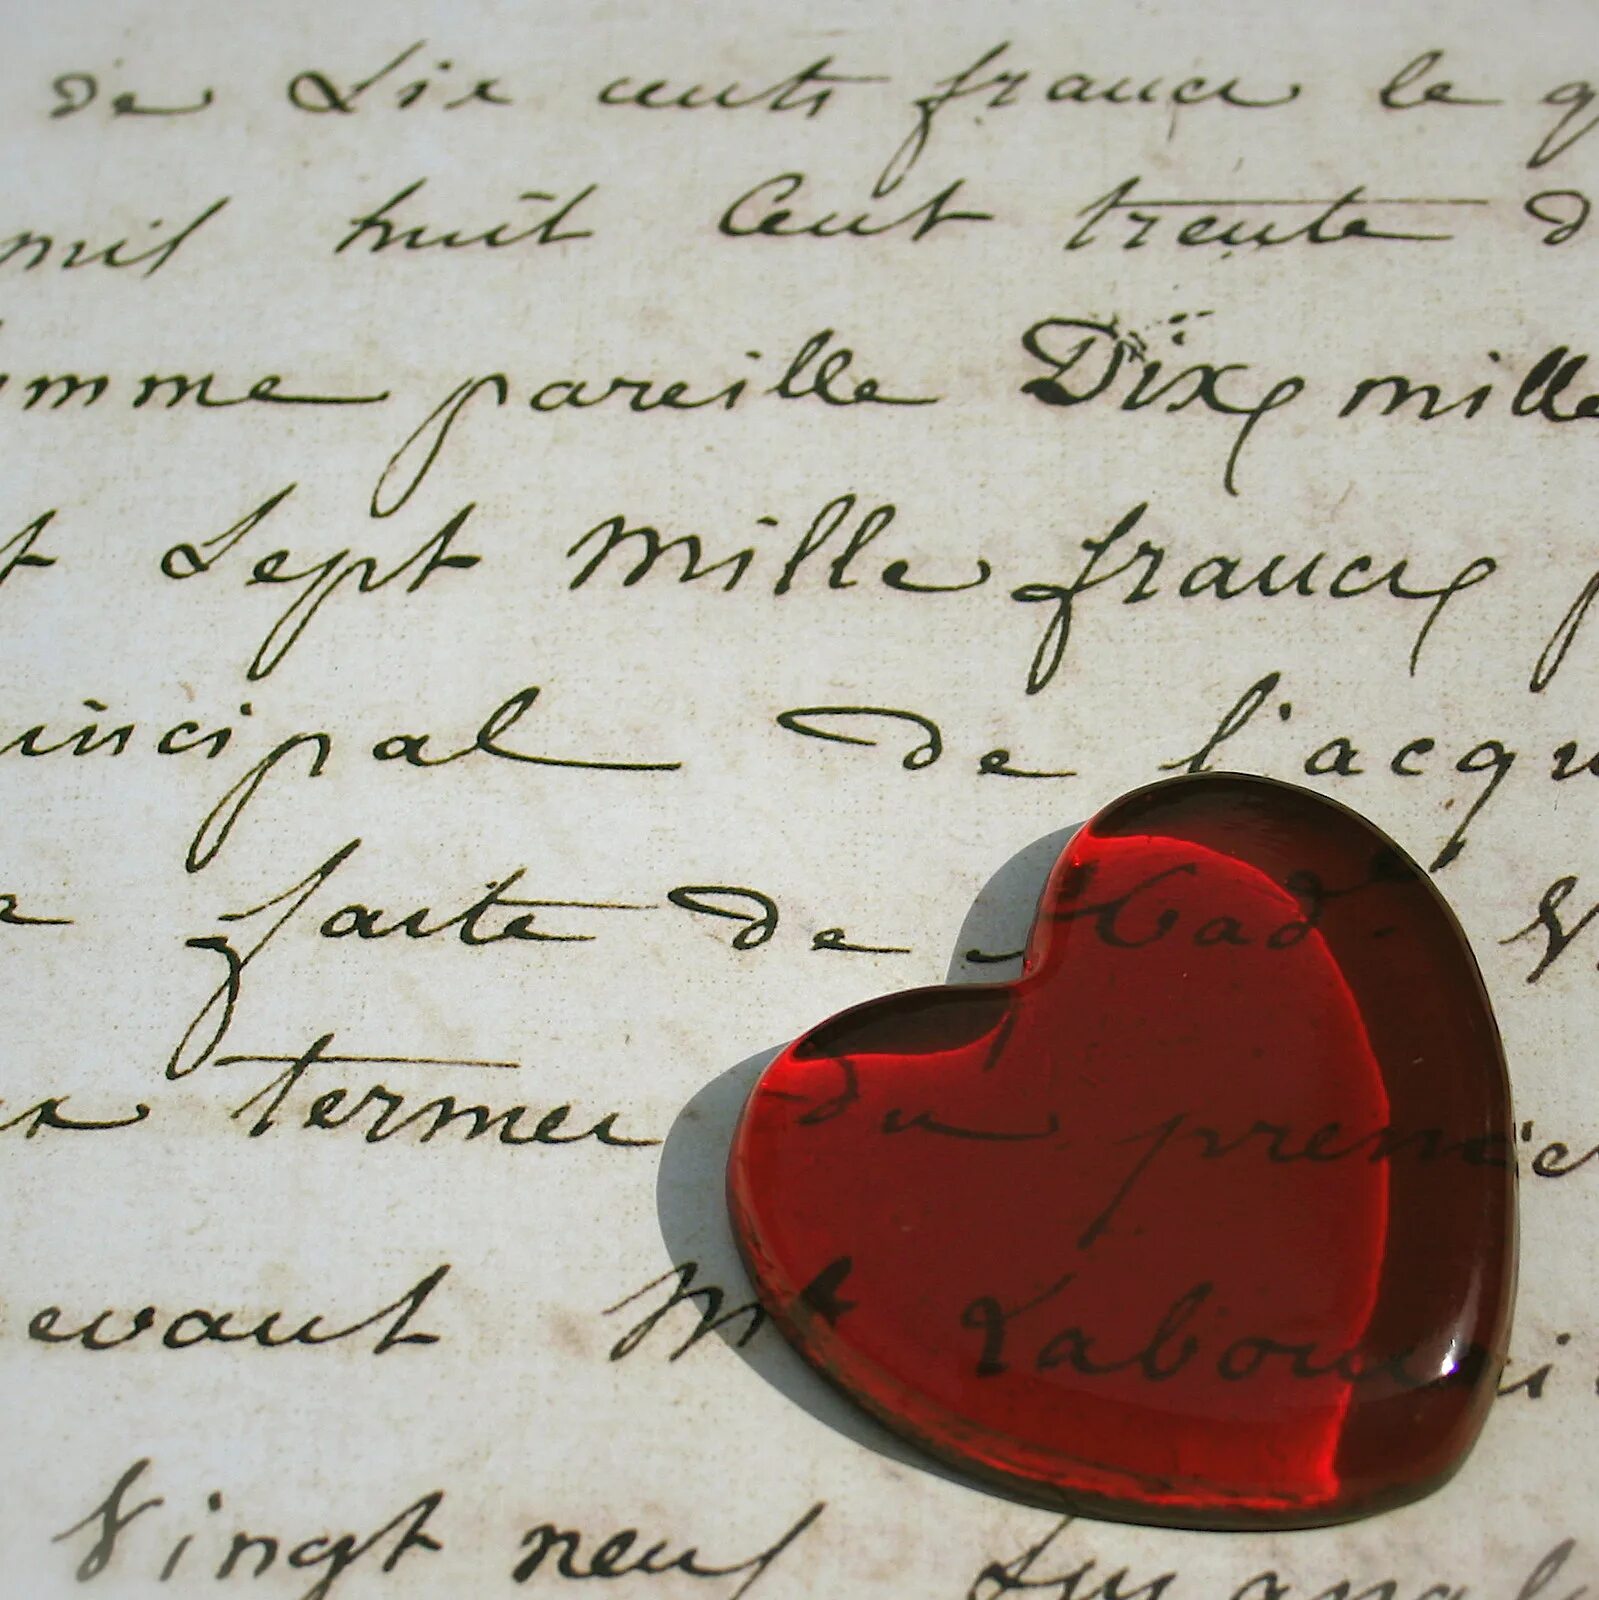 de Six cents francs le
mil huit Cent trente
omme pareille Dix mille
t Sept mille francs
incipal de l'acqu
faite de Mad. V
termes du premie
evant Mt Labou
Vingt neuf